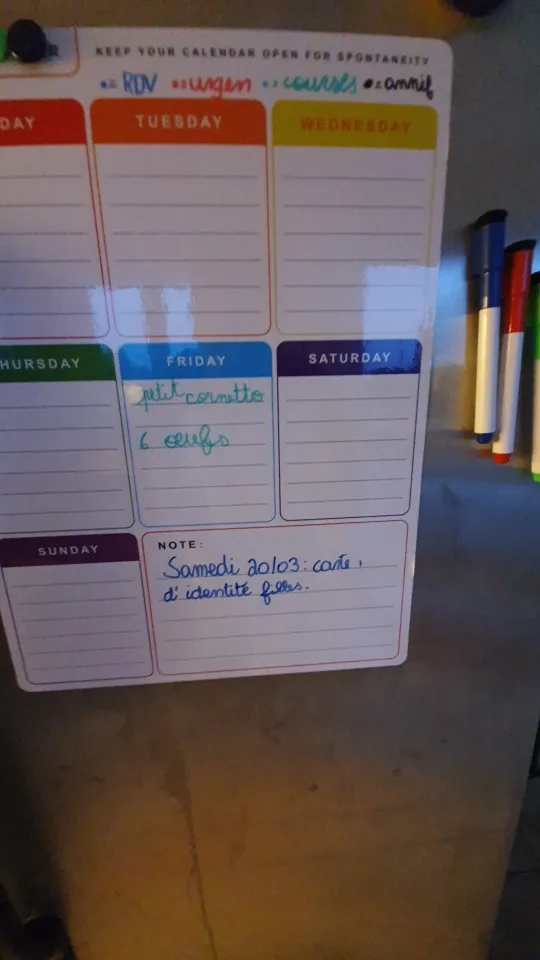 R KEEP YOUR CALENDAR OPEN FOR SPONTANEITY
•= RDV •= urgen •= courses •= annif
DAY TUESDAY WEDNESDAY
HURSDAY FRIDAY SATURDAY
petit cornetto
6 oeufs
SUNDAY NOTE:
Samedi 20/03: carte
d'identité filles.